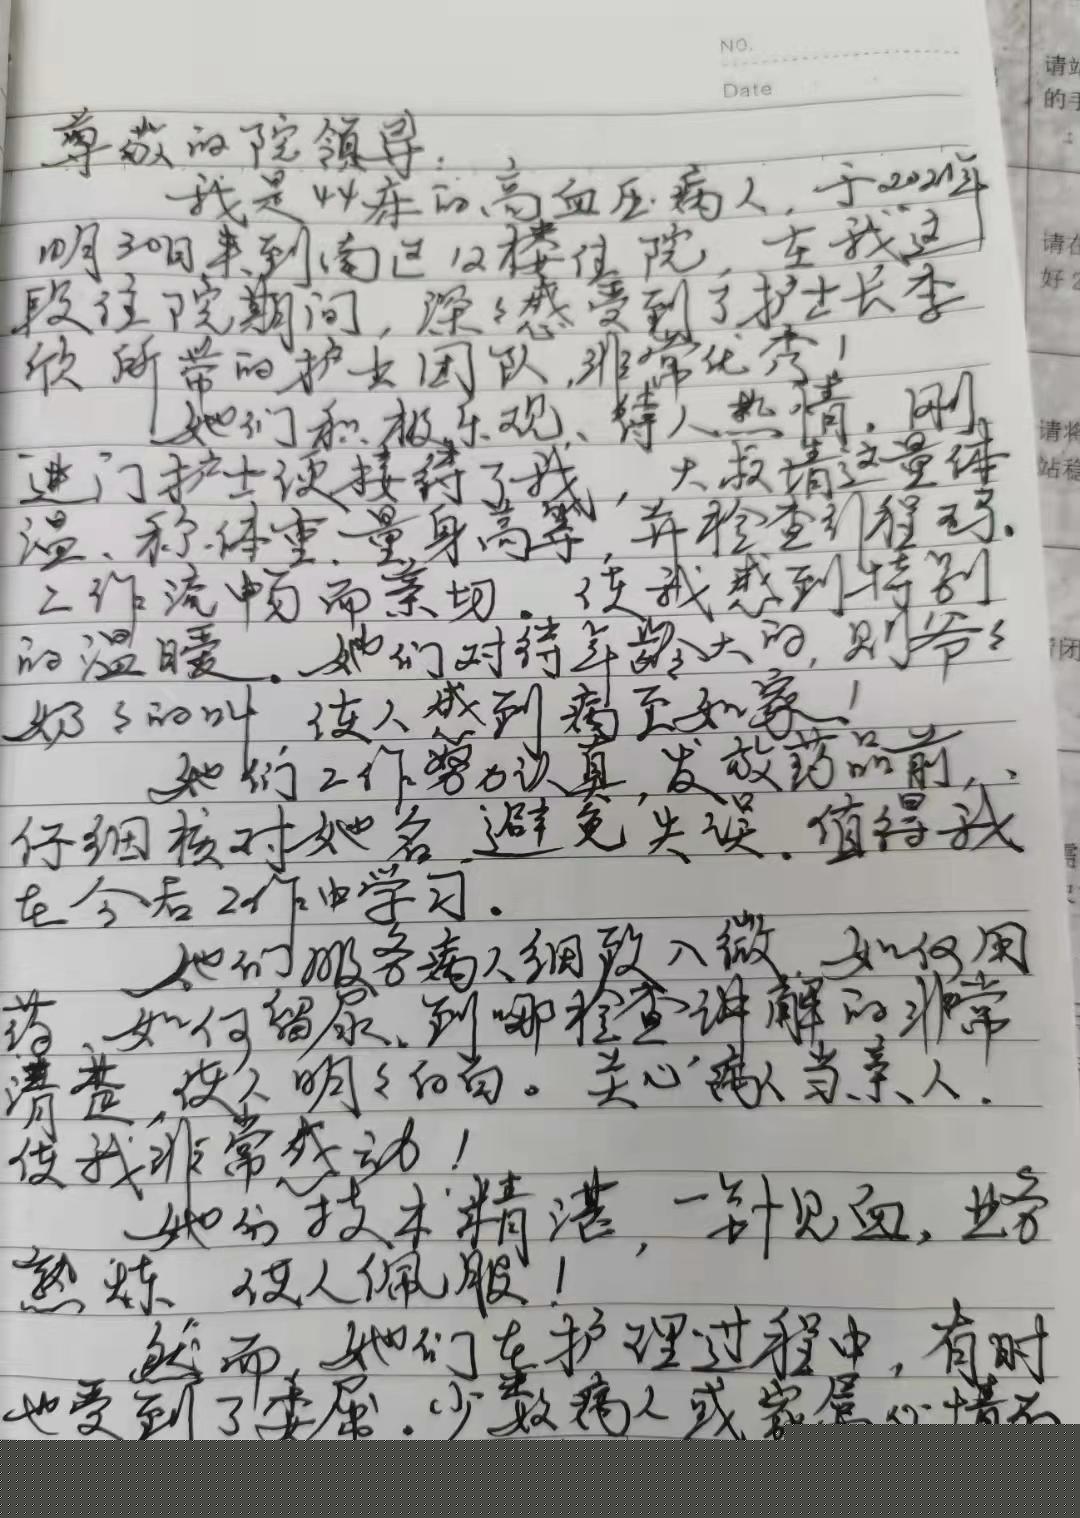 NO.
Date
尊敬的院领导:
我是44床的高血压病人,于2021年
明月30日来到南区12楼住院,在我这
段住院期间,深々感受到了护士长李
欣所带的护士团队,非常优秀!
她们积极乐观、待人热情。刚
进门护士便接待了我,大叔请这量体
温、称体重、量身高等,并检查行程码。
工作流畅而亲切。使我感到特别
的温暖。她们对待年龄大的,则爷々
奶々的叫 使人感到病至如家!
她们工作努力认真,发放药品前,、
仔细核对姓名,避免失误。值得我
在今后工作中学习。
她们服务病人细致入微,如何用
药、如何留尿、到哪检查讲解的非常
清楚,使人明々白白。关心病人当亲人.
使我非常感动!
她们技术精湛,一针见血,业务
熟练 使人佩服!
然而,她们在护理过程中,有时
也受到了委屈。少数病人或家属心情不
请站
的手
请在
好2
请将
站稳
闭
需